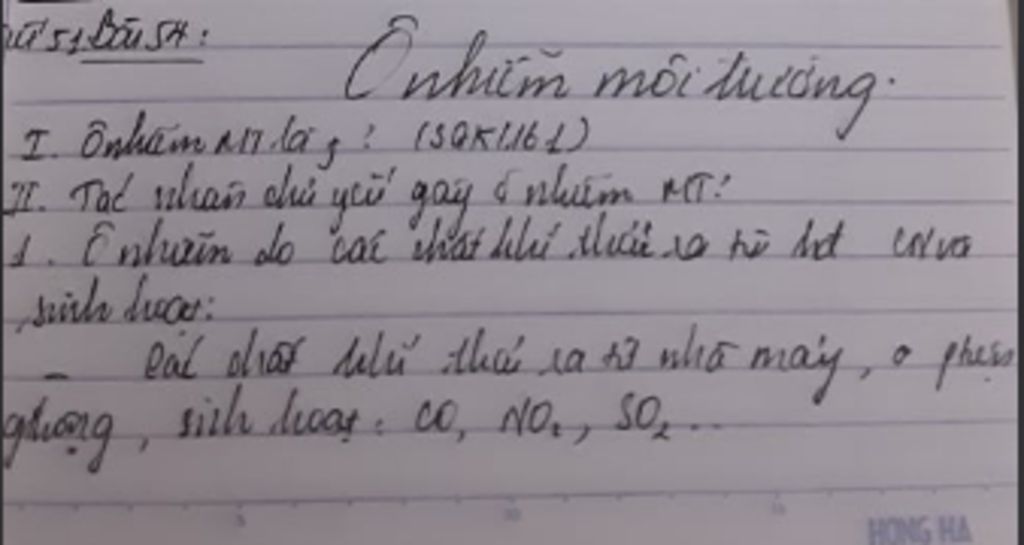 51 Bài 54:
Ô nhiễm môi trường.
I. Ô nhiễm MT là gì? (SGK/161)
II. Tác nhân chủ yếu gây ô nhiễm MT:
1. Ô nhiễm do các chất khí thải ra từ hđ CN và
sinh hoạt:
- Các chất khí thải ra từ nhà máy, phương
sinh hoạt: CO, NO₂, SO₂...
HONG HA